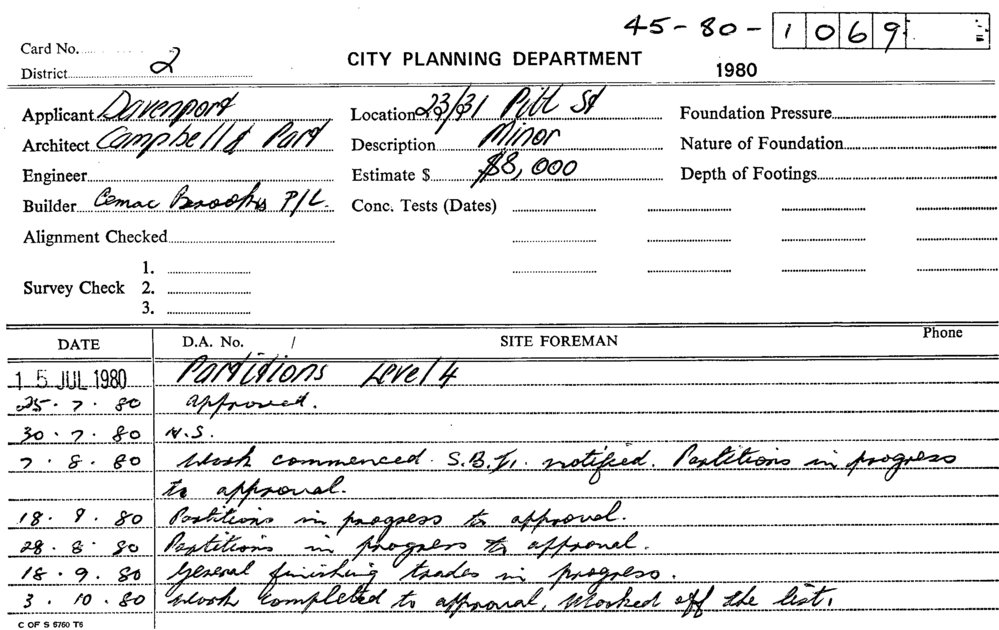 45-80-1069
Card No.
District 2
CITY PLANNING DEPARTMENT
1980
Applicant Davenport
Location 23/31 Pitt St
Foundation Pressure
Architect Campbell & Part
Description Minor
Nature of Foundation
Engineer
Estimate $ $8,000
Depth of Footings
Builder Cemac P/L.
Conc. Tests (Dates)
Alignment Checked
Survey Check 1.
2.
3.
DATE D.A. No. / SITE FOREMAN Phone
15 JUL 1980 Partitions Level 4
25.7.80 approved.
30.7.80 N.S.
7.8.80 Work commenced. notified. Partitions in progress
to approval.
18. .80 Partitions in progress to approval.
28.8.80 Partitions in progress to approval.
18.9.80 General finishing trades in progress.
3.10.80 Work completed to approval, Marked off the list.
C OF S 6760 T6